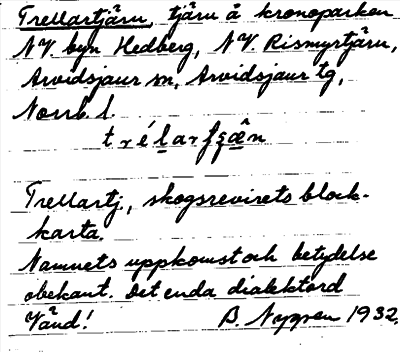 Trellartjärn, tjärn å kronoparken
NV. byn Hedberg, NV. Rismyrtjärn,
Arvidsjaur sn, Arvidsjaur tg,
Norrb. l.
Trellartj., skogsrevirets block-
karta.
Namnets uppkomst och betydelse
obekant. Det enda dialektord
Vänd! B. Nygren 1932.